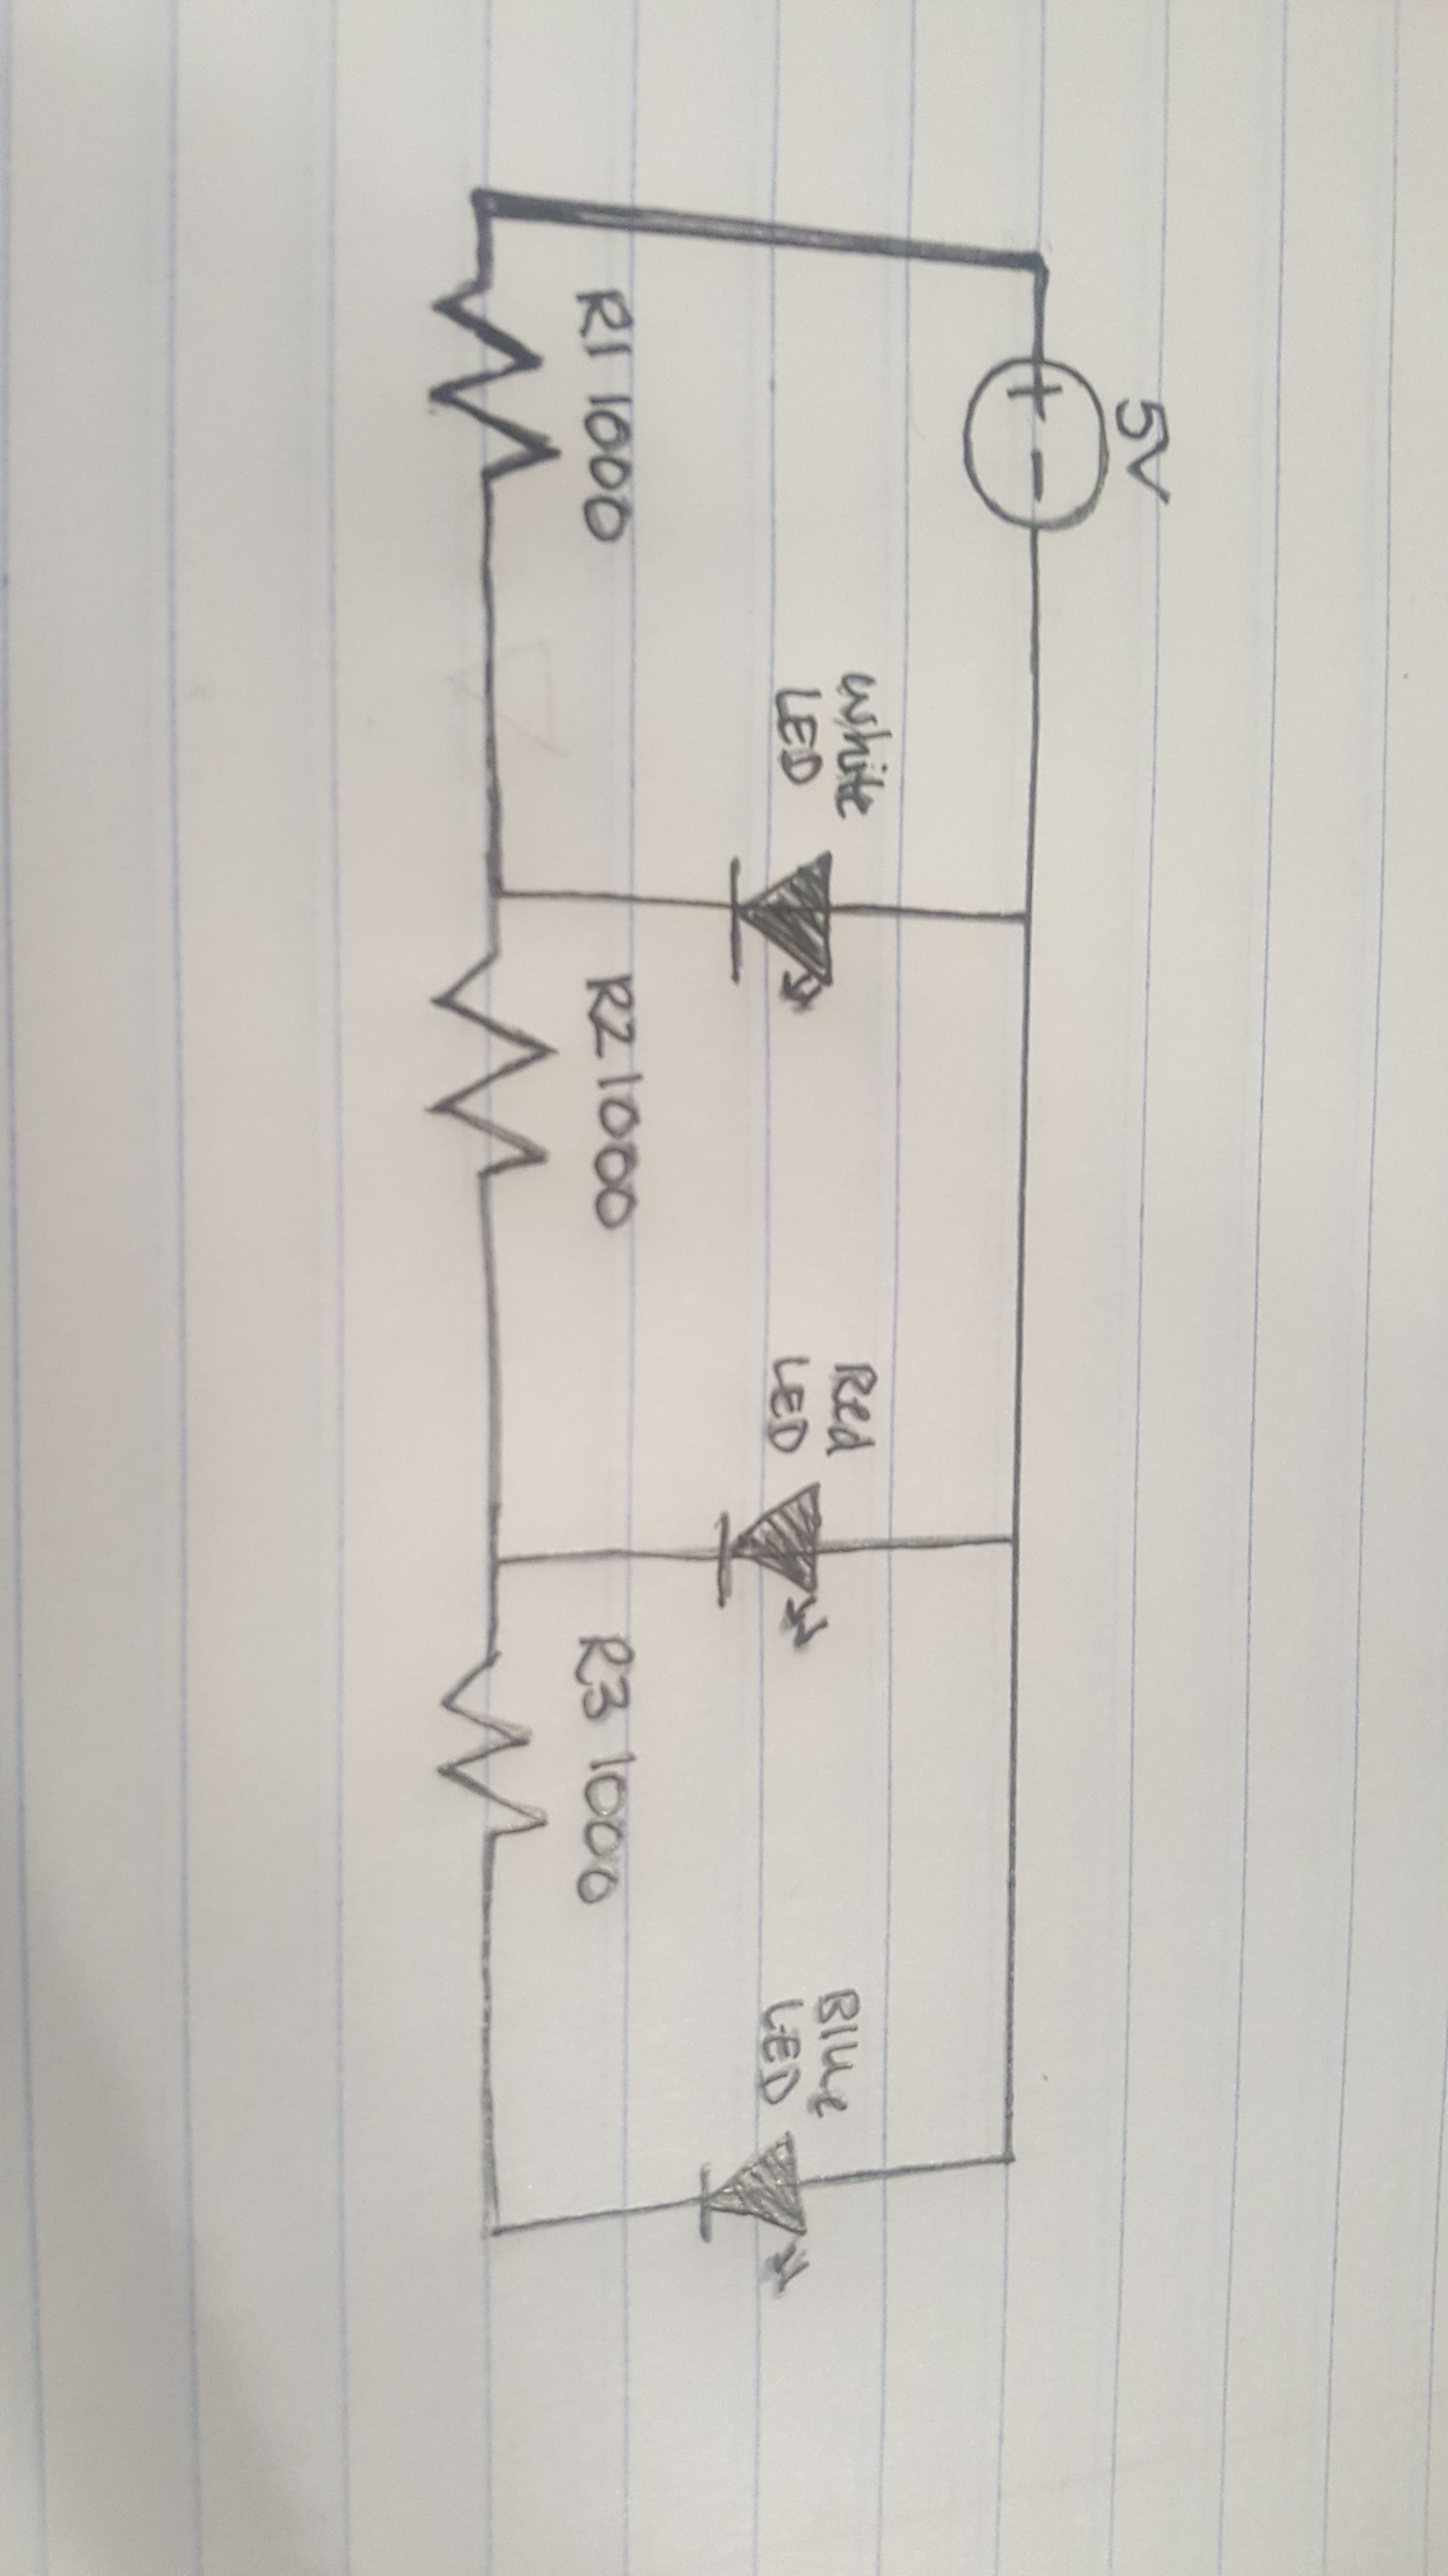 5V
+ -
White
LED
Red
LED
Blue
LED
R1 1000
R2 1000
R3 1000